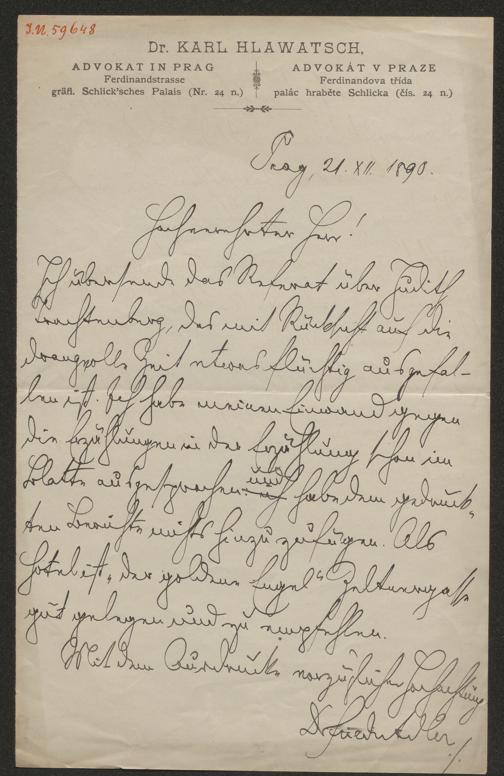 J.N. 59648
Dr. KARL HLAWATSCH,
ADVOKAT IN PRAG
Ferdinandstrasse
gräfl. Schlick'sches Palais (Nr. 24 n.)
ADVOKÁT V PRAZE
Ferdinandova třída
palác hraběte Schlicka (čís. 24 n.)
Prag, 21. XII. 1890.
Hochverehrter Herr!
Ich übersende das Referat über Judith
Trachtenberg, das mit Rücksicht auf die
drangvolle Zeit etwas flüchtig ausgefal-
len ist. Ich habe meinen Einwand gegen
die Erzählungen in der Erzählung schon im
Blatte ausgesprochen und habe dem gedruck-
ten Berichte nichts hinzuzufügen. Als
Hotel ist „der goldene Engel" Zeltnergasse
gut gelegen und zu empfehlen.
Mit dem Ausdrucke vorzüglicher Hochachtung
Dr Friedr Adler